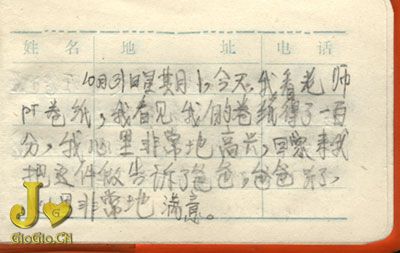 姓 名 地 址 电 话
10月31日星期日,今天,我看老师
卷纸,我看见我的卷纸得了一百
分,我心里非常地高兴,回家来我
把这件 告诉了爸爸,爸爸 了,
里非常地满意。
GioGio.CN